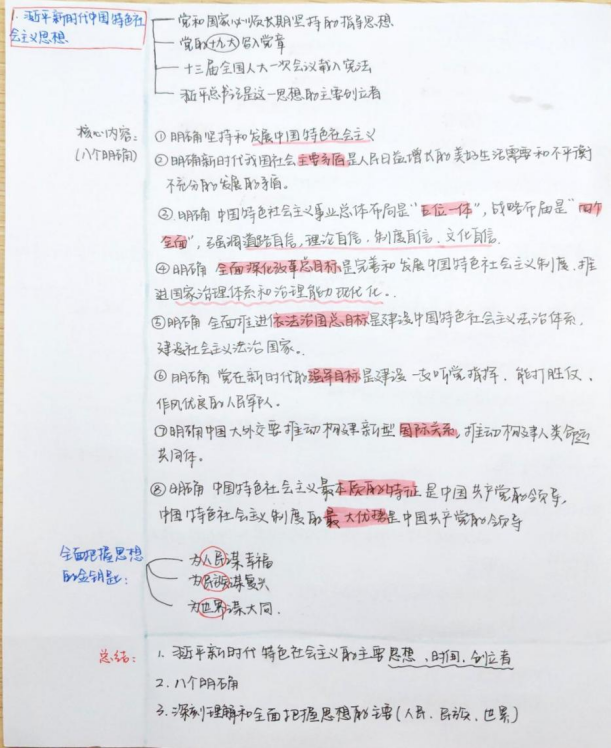 1. 习近平新时代中国特色社
会主义思想.
党和国家必须长期坚持的指导思想.
党的十九大写入党章
十三届全国人大一次会议载入宪法
习近平总书记是这一思想的主要创立者
核心内容:
(八个明确)
①明确坚持和发展中国特色社会主义
②明确新时代我国社会主要矛盾是人民日益增长的美好生活需要和不平衡
不充分的发展的矛盾。
③明确中国特色社会主义事业总体布局是“五位一体”,战略布局是“四个
全面”,强调道路自信,理论自信、制度自信、文化自信.
④明确 全面深化改革总目标是完善和发展中国特色社会主义制度、推
进国家治理体系和治理能力现代化.
⑤明确 全面推进依法治国总目标是建设中国特色社会主义法治体系,
建设社会主义法治国家.
⑥明确 党在新时代的强军目标是建设一支听党指挥、能打胜仗、
作风优良的人民军队.
⑦明确中国大外交要推动构建新型国际关系,推动构建人类命运
共同体.
⑧明确 中国特色社会主义最本质的特征是中国共产党的领导,
中国特色社会主义制度的最大优势是中国共产党的领导
全面把握思想
的金钥匙:
为人民谋幸福
为民族谋复兴
为世界谋大同.
总结:
1. 习近平新时代特色社会主义的主要思想、时间、创立者
2. 八个明确
3. 深刻理解和全面把握思想的主要(人民、民族、世界)